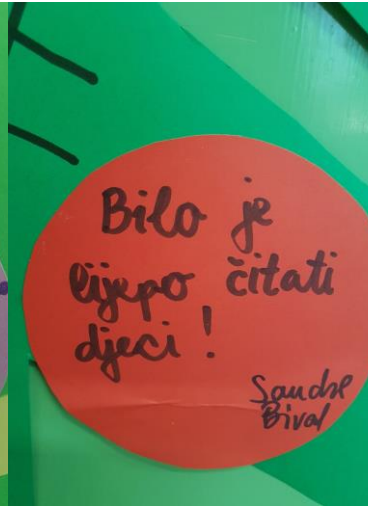 Bilo je
lijepo čitati
djeci !
Bival